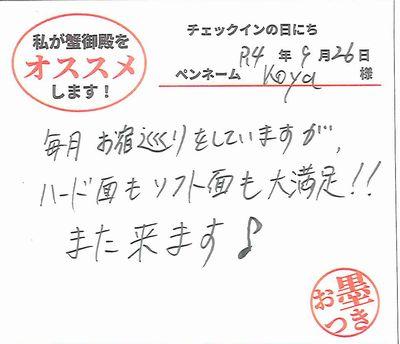 私が蟹御殿を
オススメ
します！
チェックインの日にち
R4 年 9 月 26 日
ペンネーム Koya 様
毎月 お宿巡りをしていますが、
ハード面もソフト面も大満足!!
また来ます♪
お墨つき